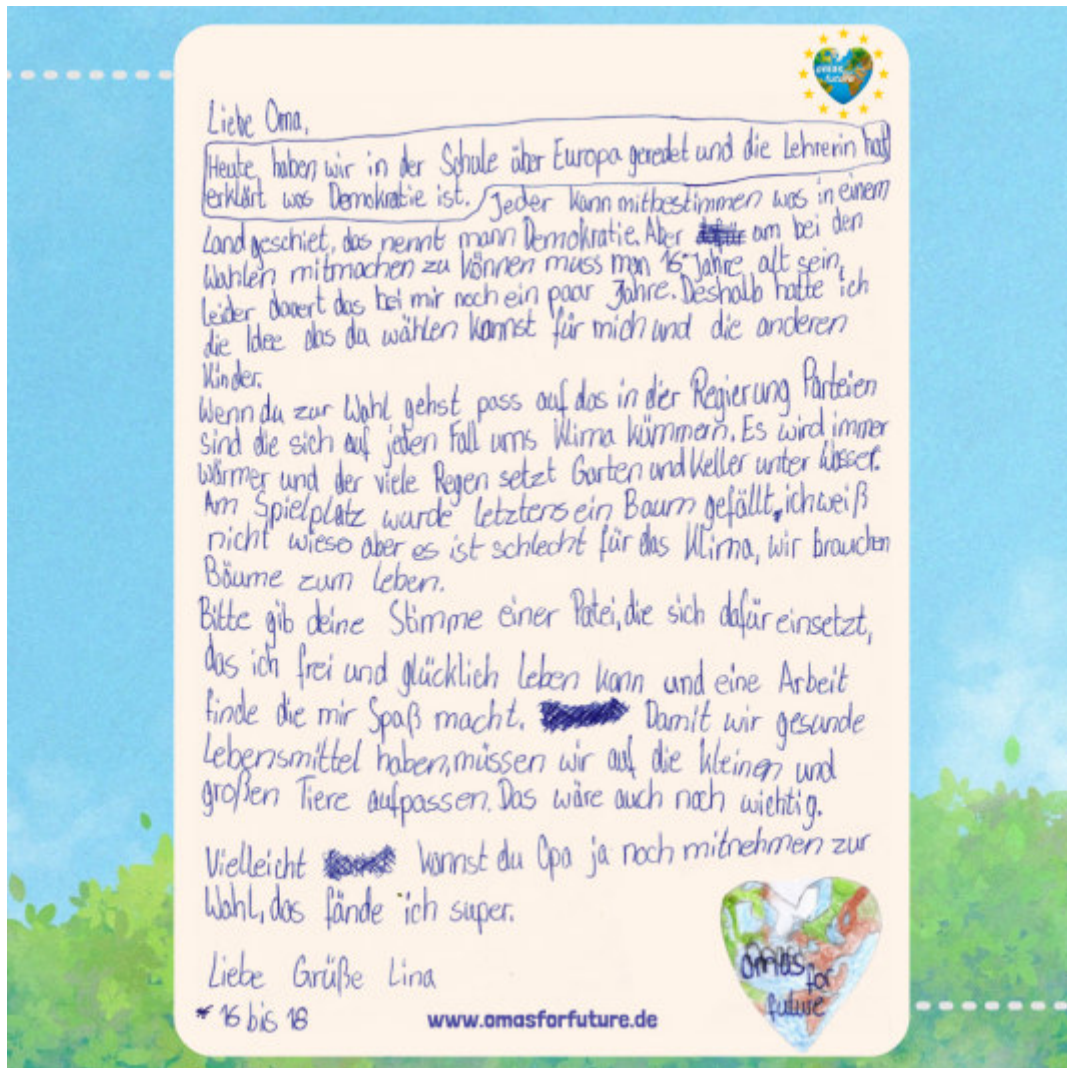 omas for future
Liebe Oma,
Heute haben wir in der Schule über Europa geredet und die Lehrerin hat
erklärt was Demokratie ist. Jeder kann mitbestimmen was in einem
Land geschiet, das nennt mann Demokratie. Aber um bei den
Wahlen mitmachen zu können muss man 16* Jahre alt sein,
leider dauert das bei mir noch ein paar Jahre. Deshalb hatte ich
die Idee das du wählen kannst für mich und die anderen
Kinder.
Wenn du zur Wahl gehst pass auf das in der Regierung Parteien
sind die sich auf jeden Fall ums Klima kümmern. Es wird immer
wärmer und der viele Regen setzt Garten und Keller unter Wasser.
Am Spielplatz wurde letztens ein Baum gefällt, ich weiß
nicht wieso aber es ist schlecht für das Klima, wir brauchen
Bäume zum leben.
Bitte gib deine Stimme einer Patei, die sich dafür einsetzt,
das ich frei und glücklich leben kann und eine Arbeit
finde die mir Spaß macht. Damit wir gesunde
Lebensmittel haben, müssen wir auf die kleinen und
großen Tiere aufpassen. Das wäre auch noch wichtig.
Vielleicht kannst du Opa ja noch mitnehmen zur
Wahl, das fände ich super.
Liebe Grüße Lina
* 16 bis 18
www.omasforfuture.de
omas for
future